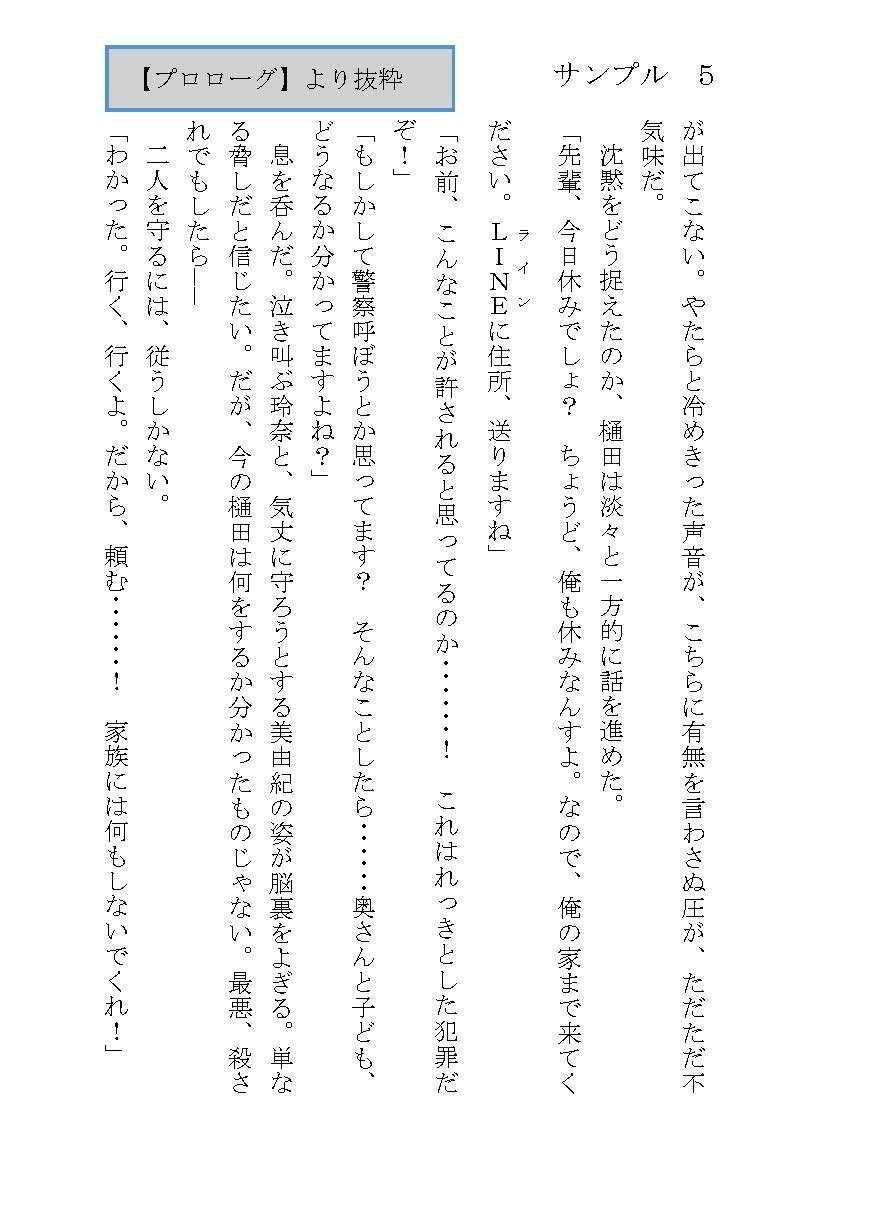 サンプル　５
【プロローグ】より抜粋
が出てこない。やたらと冷めきった声音が、こちらに有無を言わさぬ圧が、ただただ不
気味だ。
　沈黙をどう捉えたのか、樋田は淡々と一方的に話を進めた。
「先輩、今日休みでしょ？　ちょうど、俺も休みなんすよ。なので、俺の家まで来てく
ライン
ださい。ＬＩＮＥに住所、送りますね」
「お前、こんなことが許されると思ってるのか……！　これはれっきとした犯罪だ
ぞ！」
「もしかして警察呼ぼうとか思ってます？　そんなことしたら……奥さんと子ども、
どうなるか分かってますよね？」
　息を呑んだ。泣き叫ぶ玲奈と、気丈に守ろうとする美由紀の姿が脳裏をよぎる。単な
る脅しだと信じたい。だが、今の樋田は何をするか分かったものじゃない。最悪、殺さ
れでもしたら――
　二人を守るには、従うしかない。
「わかった。行く、行くよ。だから、頼む……！　家族には何もしないでくれ！」